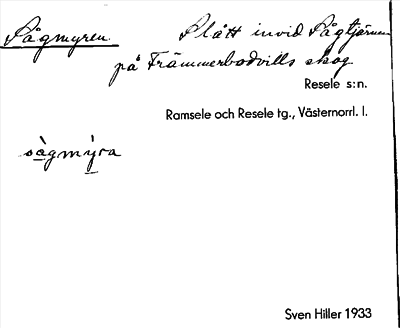 Sågmyren Slått invid Sågtjärnen
på Främmerbodvills skog
Resele s:n.
Ramsele och Resele tg., Västernorrl. l.
sàgmýra
Sven Hiller 1933